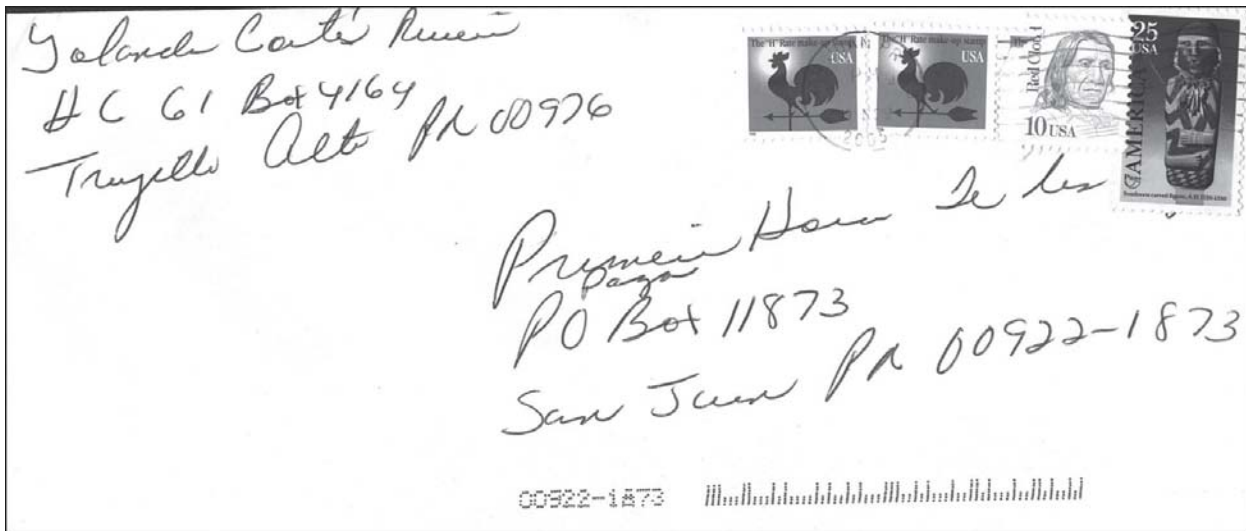 Yolanda Cortés Rivera
HC 61 Box 4164
Trujillo Alto PR 00976
The "H" Rate make-up stamp
USA
The "H" Rate make-up stamp
USA
Red Cloud
10 USA
25
USA
AMERICA
2003
Primera Hora Te
Paga
PO Box 11873
San Juan PR 00922-1873
00922-1873